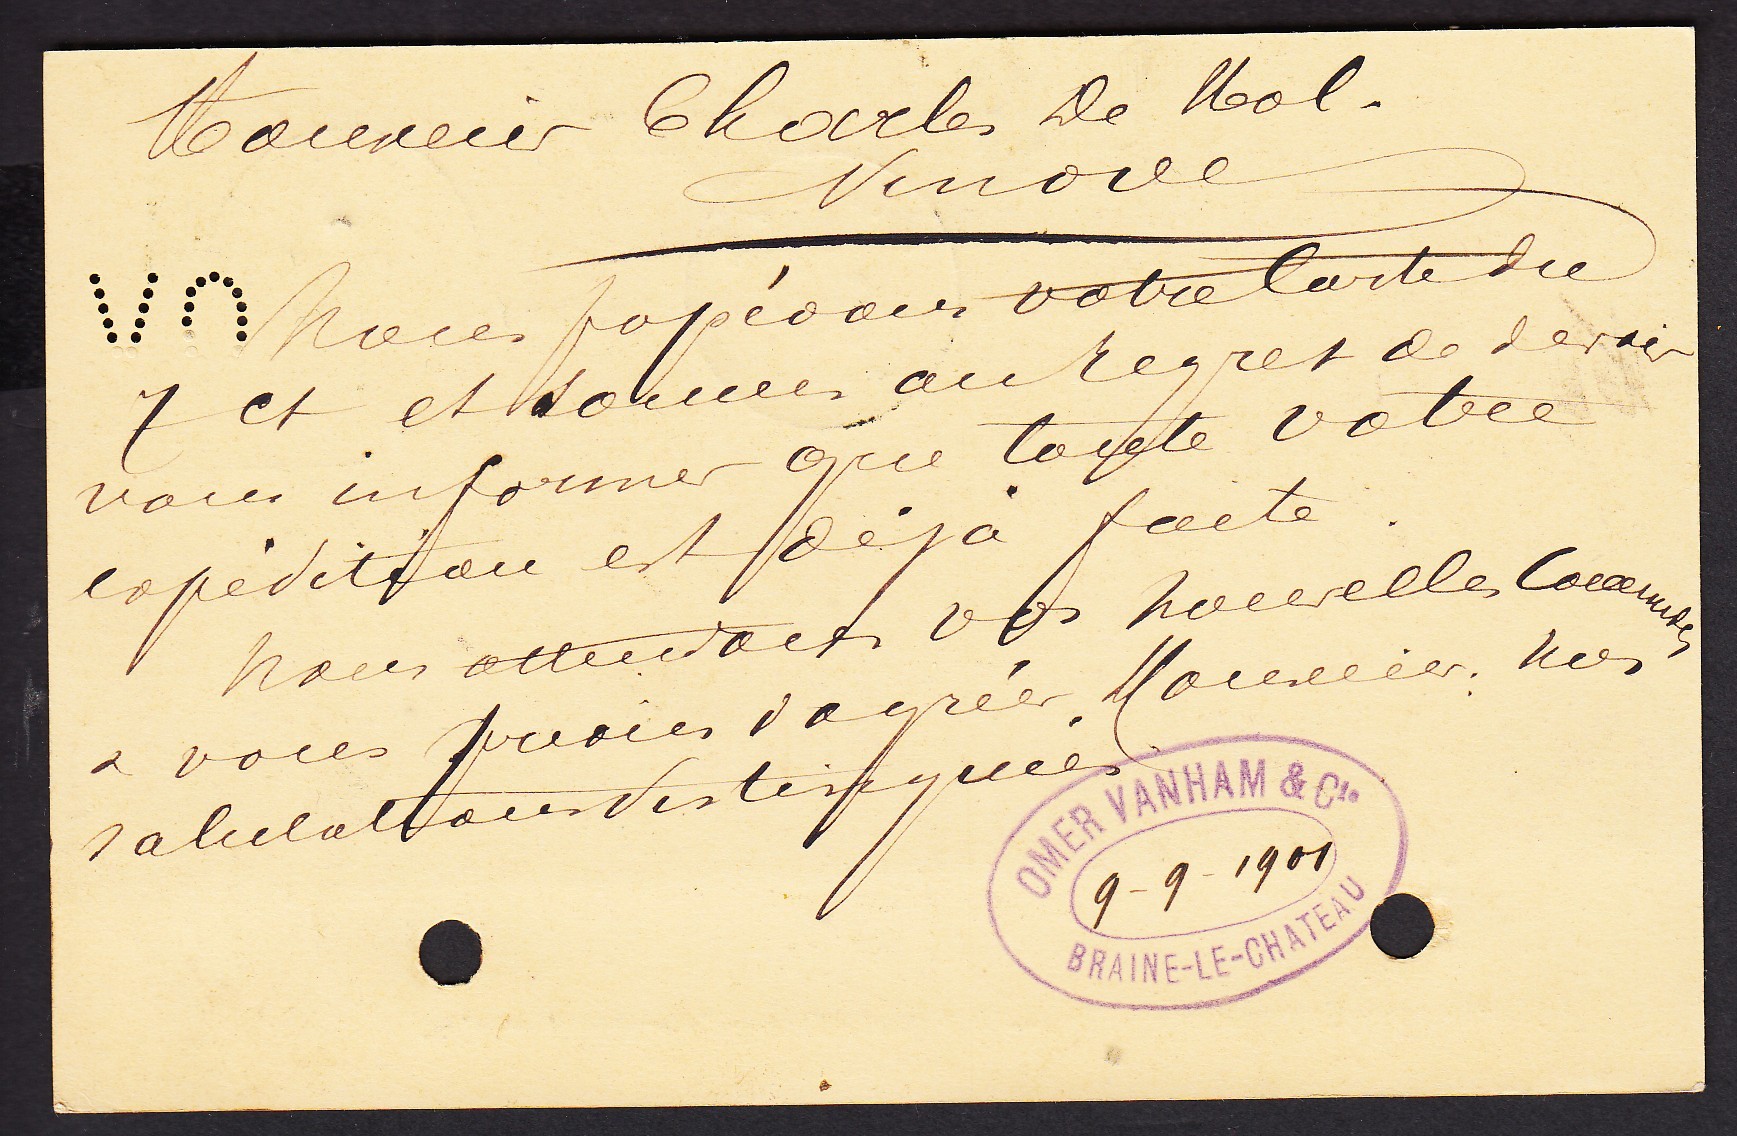 Monsieur Charles De Mol.
Ninove
Nous possédons votre carte du
7 ct et sommes au regret de devoir
vous informer que toute votre
expédition est déjà faite.
Nous attendons vos nouvelles Commandes
& vous prions d'agréer, Monsieur, nos
salutations distinguées
OMER VANHAM & Cie
9-9-1901
BRAINE-LE-CHATEAU